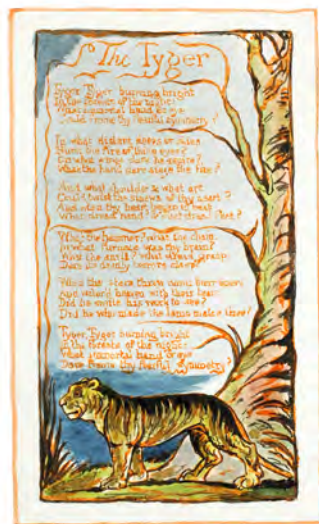 The Tyger
Tyger Tyger, burning bright,
In the forests of the night:
What immortal hand or eye,
Could frame thy fearful symmetry?
In what distant deeps or skies.
Burnt the fire of thine eyes?
On what wings dare he aspire?
What the hand dare sieze the fire?
And what shoulder, & what art,
Could twist the sinews of thy heart?
And when thy heart began to beat,
What dread hand? & what dread feet?
What the hammer? what the chain,
In what furnace was thy brain?
What the anvil? what dread grasp,
Dare its deadly terrors clasp?
When the stars threw down their spears
And water'd heaven with their tears:
Did he smile his work to see?
Did he who made the Lamb make thee?
Tyger Tyger burning bright,
In the forests of the night:
What immortal hand or eye,
Dare frame thy fearful symmetry?